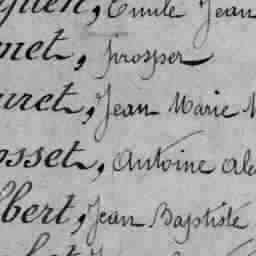 guen, Emile Jean
met, prosper
uret, Jean Marie
osset, Antoine ale
bert, Jean Baptiste